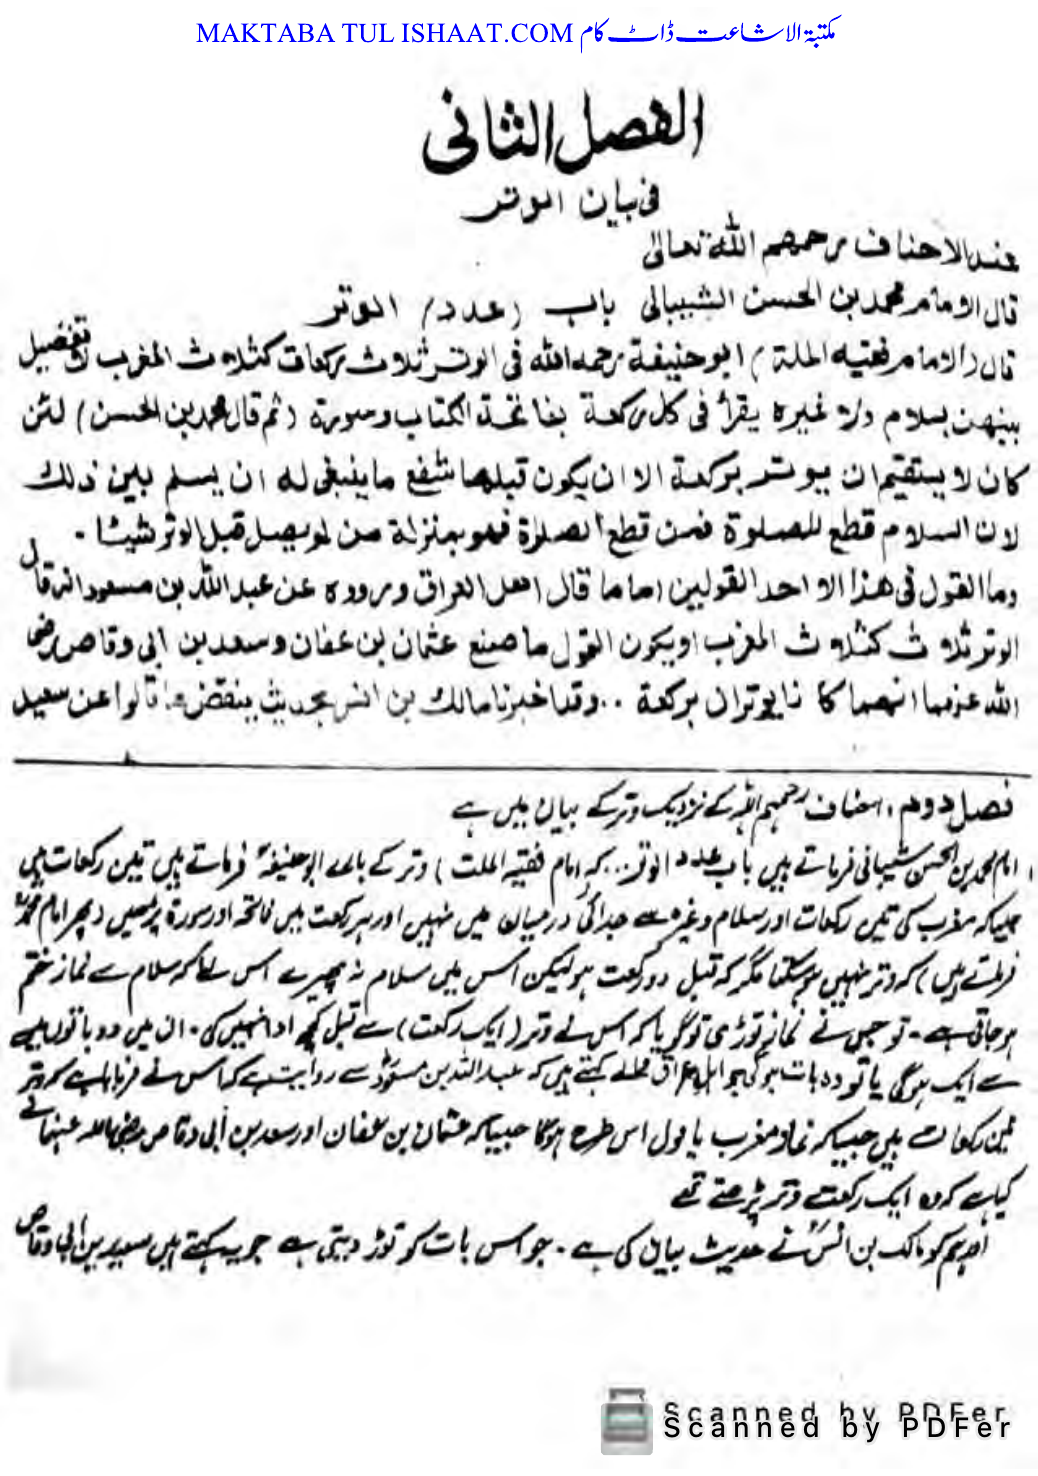 MAKTABA TUL ISHAAT.COM مکتبۃ الاشاعت ڈاٹ کام
الفصل الثانی
فی بیان الوتر
عند الاحناف رحمهم اللہ تعالیٰ
قال الامام محمد بن الحسن الشیبانی باب (عدد) الوتر
قال (الامام فقیه الملة) ابو حنیفة رحمه الله فی الوتر ثلاث رکعات کثلاث المغرب لا تفصیل
بینهن بسلام ولا غیره یقرأ فی کل رکعة بفاتحة الکتاب وسورة (ثم قال محمد بن الحسن) لئن
کان لا یستقیم ان یوتر برکعة الا ان یکون قبلها شفع ما ینبغی له ان یسلم بین ذلک
لان السلام قطع للصلوة فمن قطع الصلوة فهو بمنزلة من لم یصل قبل الوتر شیئا۔
وما القول فی هذا الا احد القولین اما ما قال اهل العراق ورووه عن عبد الله بن مسعود انه قال
الوتر ثلاث کثلاث المغرب او یکون القول ما صنع عثمان بن عفان وسعد بن ابی وقاص رضی
الله عنهما انهما کانا یوتران برکعة .. وقد اخبرنا مالک بن انس بحدیث ینقض ما قالوا عن سعید
فصل دوم، احناف رحمہم اللہ کے نزدیک وتر کے بیان میں ہے
امام محمد بن الحسن شیبانی فرماتے ہیں باب عدد الوتر... کہ امام فقیہ الملت) وتر کے بارے ابو حنیفہؒ فرماتے ہیں تین رکعات ہیں
جیسا کہ مغرب کی تین رکعات اور سلام وغیرہ سے جدائی درمیان میں نہیں اور ہر رکعت میں فاتحہ اور سورۃ پڑھیں (پھر امام محمدؒ
فرماتے ہیں) کہ وتر نہیں ہو سکتا مگر کہ قبل دو رکعت ہو لیکن اس میں سلام نہ پھیرے اس لئے کہ سلام سے نماز ختم
ہو جاتی ہے۔ تو جس نے نماز توڑی تو گویا کہ اس نے وتر (ایک رکعت) سے قبل کچھ ادا نہیں کی۔ ان میں دو باتوں میں
سے ایک ہوگی یا تو وہ بات ہوگی جو اہل عراق والے کہتے ہیں کہ عبد اللہ بن مسعودؓ سے روایت ہے کہ اس نے فرمایا ہے کہ وتر
تین رکعات ہیں جیسا کہ نماز مغرب یا قول اس طرح ہوگا جیسا کہ عثمان بن عفان اور سعد بن أبی وقاص رضی اللہ عنہما نے
کیا ہے کہ وہ ایک رکعت وتر پڑھتے تھے
اور ہم کو مالک بن انسؒ نے حدیث بیان کی ہے۔ جو اس بات کو توڑ دیتی ہے جو یہ کہتے ہیں سعید بن أبی وقاص
Scanned by PDFer